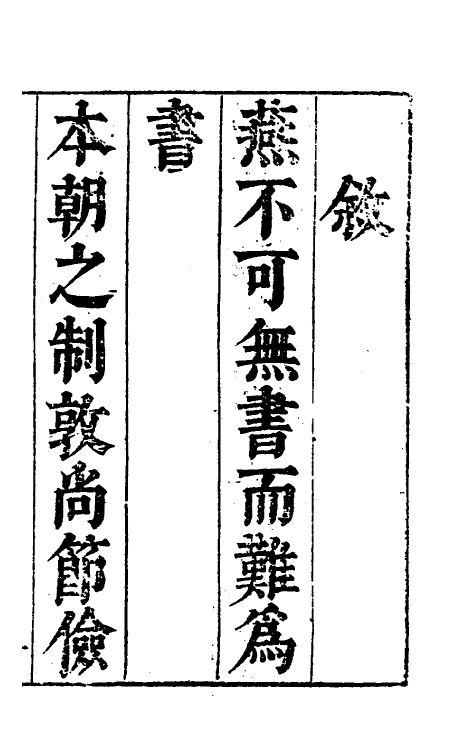 敘
燕不可無書而難爲
書
本朝之制敦尚節儉